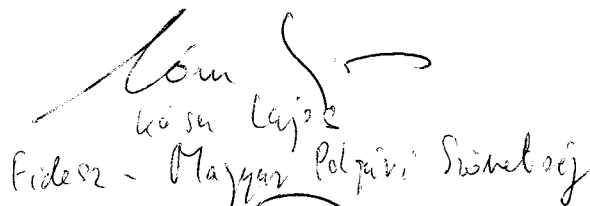 Kósa Lajos
Fidesz - Magyar Polgári Szövetség